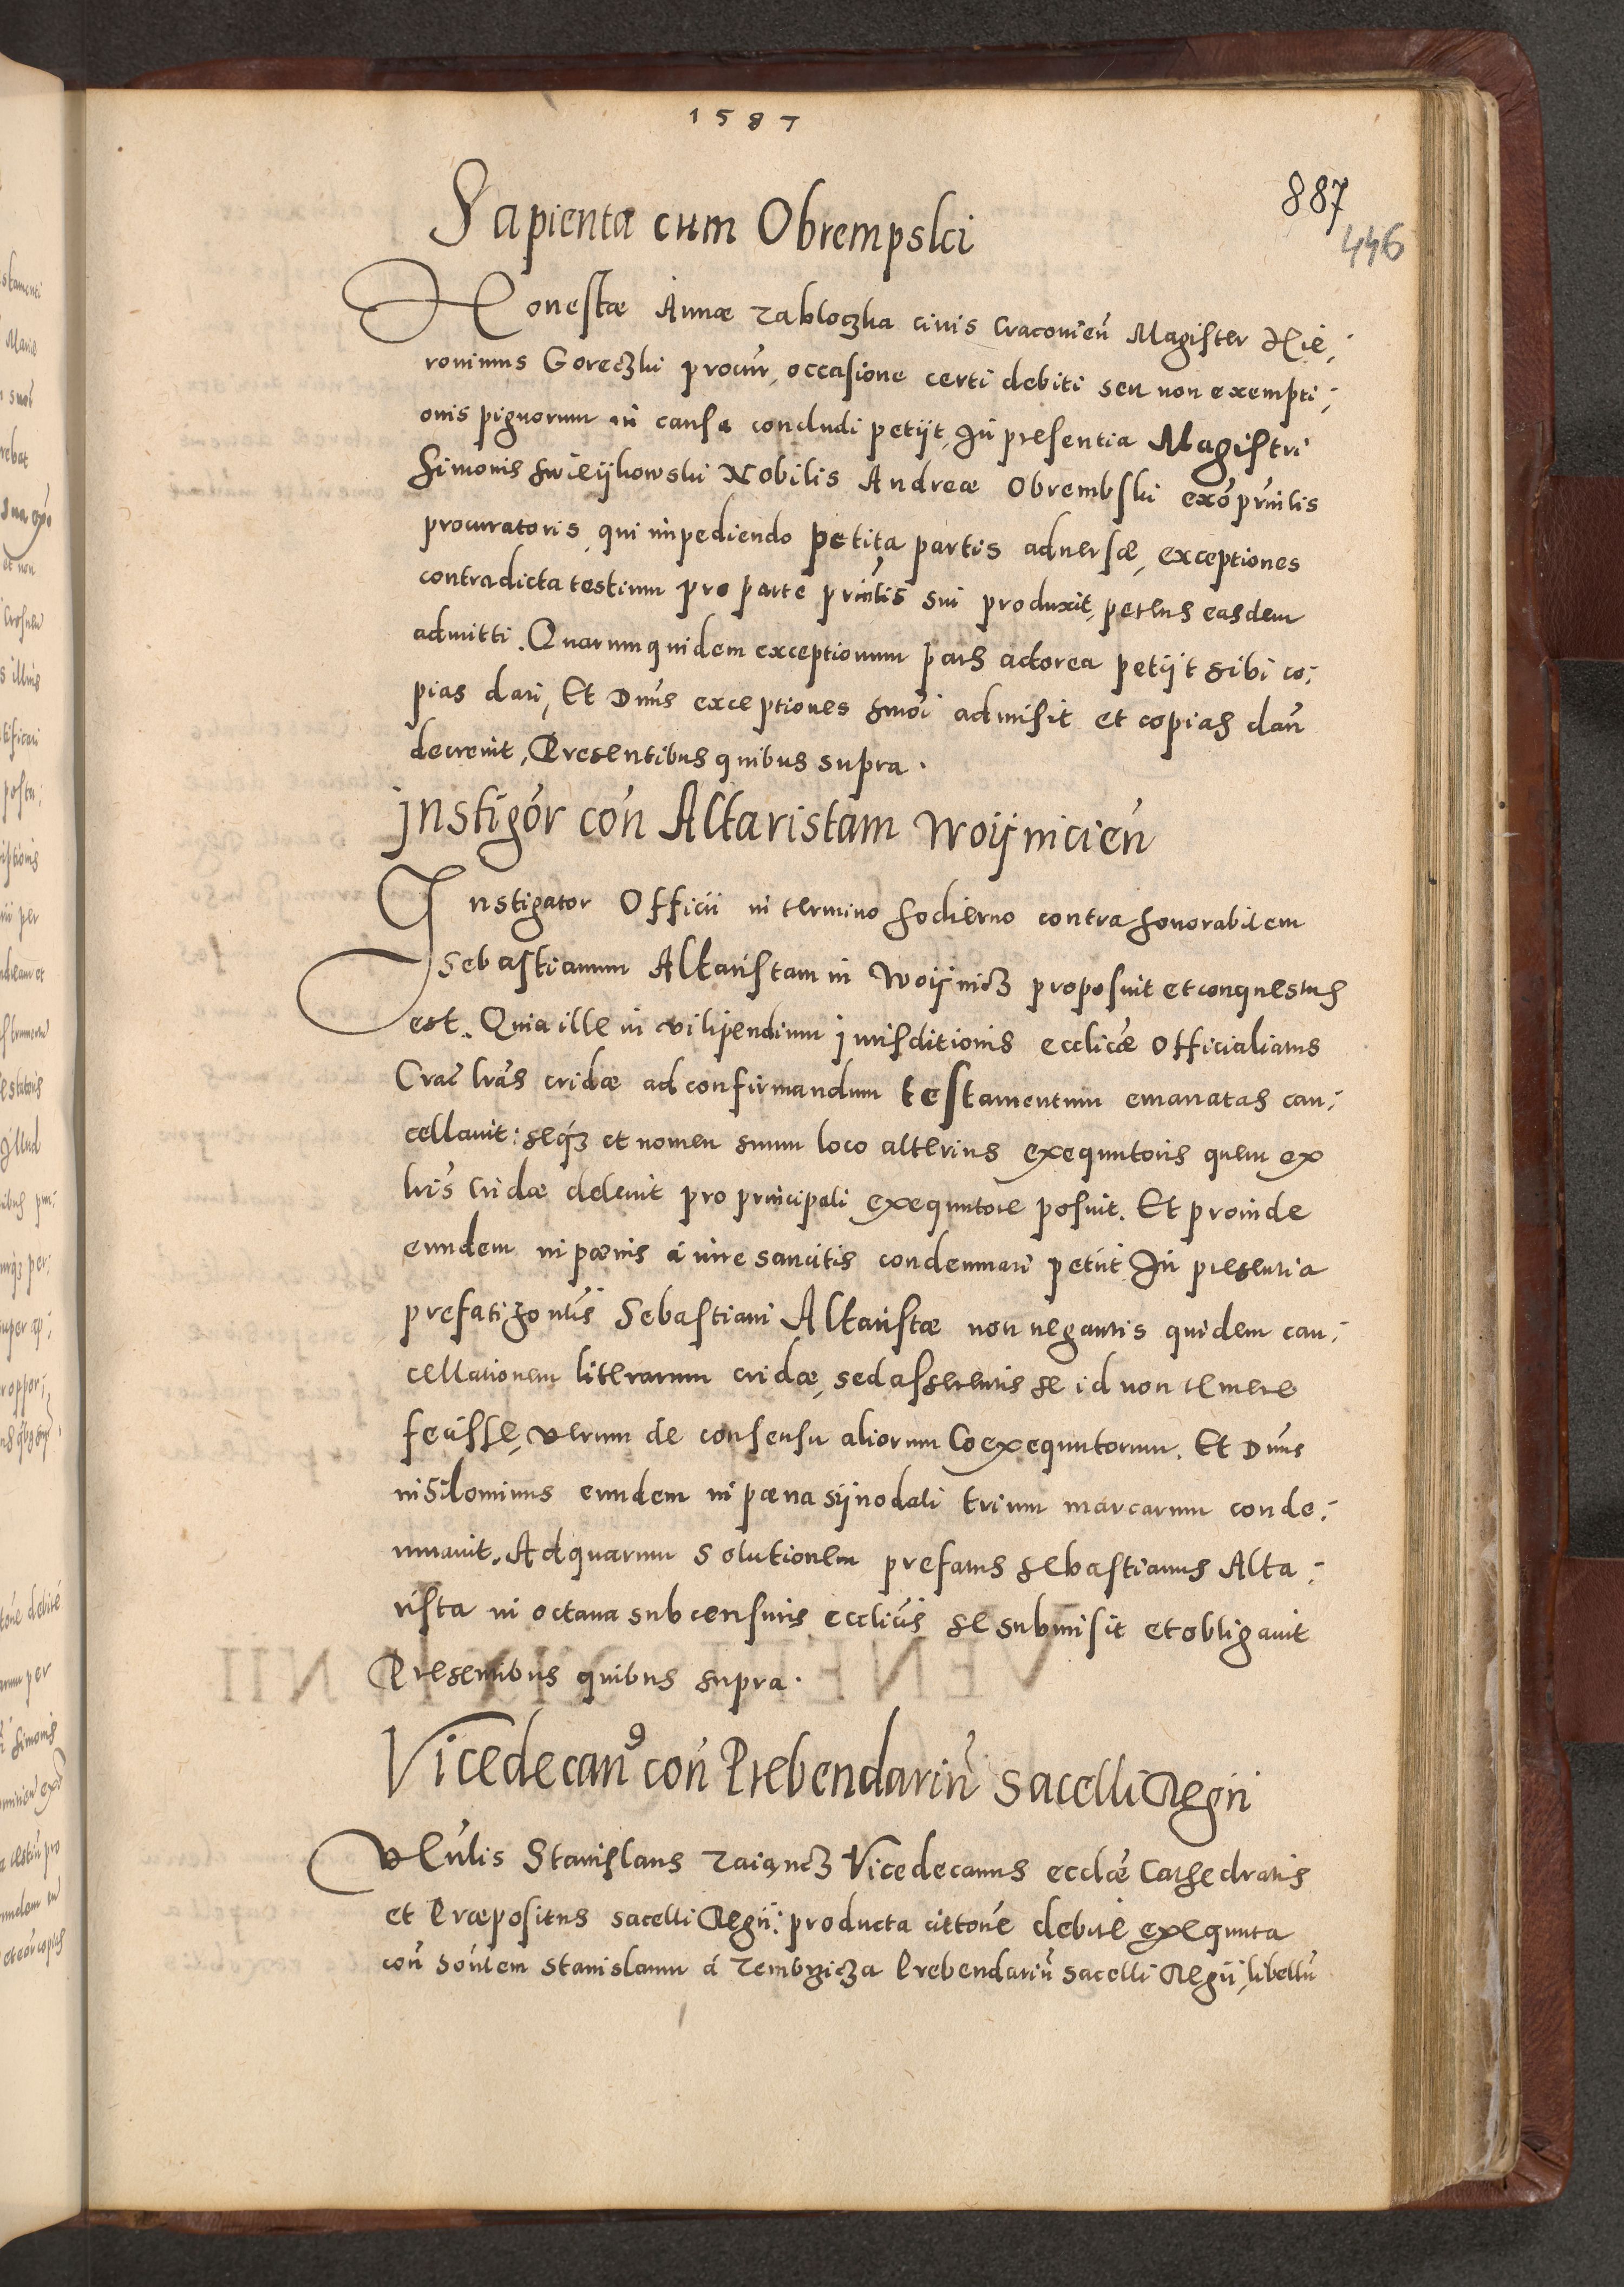 1587
887
446
Sapienta cum Obrempski
Honestæ Annæ Zabloczka civis Cracovień Magister Hie
ronimus Goreczki procur̃, occasione certi debiti seu non exempti
onis pignorum in causa concludi petijt, In presentia Magistri
Simonis Swieijkowski Nobilis Andreæ Obrembski exõ prñilis
procuratoris, qui impediendo petita partis adversæ, exceptiones
contradicta testium pro parte prñlis sui produxit, petens easdem
admitti. Quarum quidem exceptionum pars actorea petijt sibi co
pias dari, Et Dñs exceptiones hmõi admisit et copias dań
decrevit, Presentibus quibus supra.
Instigõr coń Altaristam Woijnicień
Instigator Officii in termino hodierno contra honorabilem
Sebastianum Altaristam in Woijnicz proposuit et conquestus
est. Quia ille in vilipendium jurisditionis ecclicæ Officialatus
Crac̃ lrãs cridæ ad confirmandum testamentum emanatas can
cellavit: seq3 et nomen suum loco alterius exequutoris quem ex
lris cridæ delevit pro principali exequutore posuit. Et proinde
eundem in pœnis à iure sancitis condemnari petiit In presentia
prefati honlis Sebastiani Altaristæ non negantis quidem can
cellationem literarum cridæ, sed asserentis se id non temere
fecisse, verum de consensu aliorum Coexequutorum. Et Dñs
nihilominus eundem in pœna sijnodali trium marcarum conde
mnavit. Ad quarum solutionem prefatus Sebastianus Alta
rista in octava sub censuris ecclicis se submisit et obligavit
Presentibus quibus supra.
Vicedecan9 coń Prebendariũ Sacelli Regii
Vẽnlis Stanislaus Zaiącz Vicedecanus ecclæ Cathedralis
et Præpositus sacelli Regii: producta cittoñe debite exequuta
coń hoñlem Stanislaum à Zembrzicza Prebendariũ sacelli Regii, libellũ